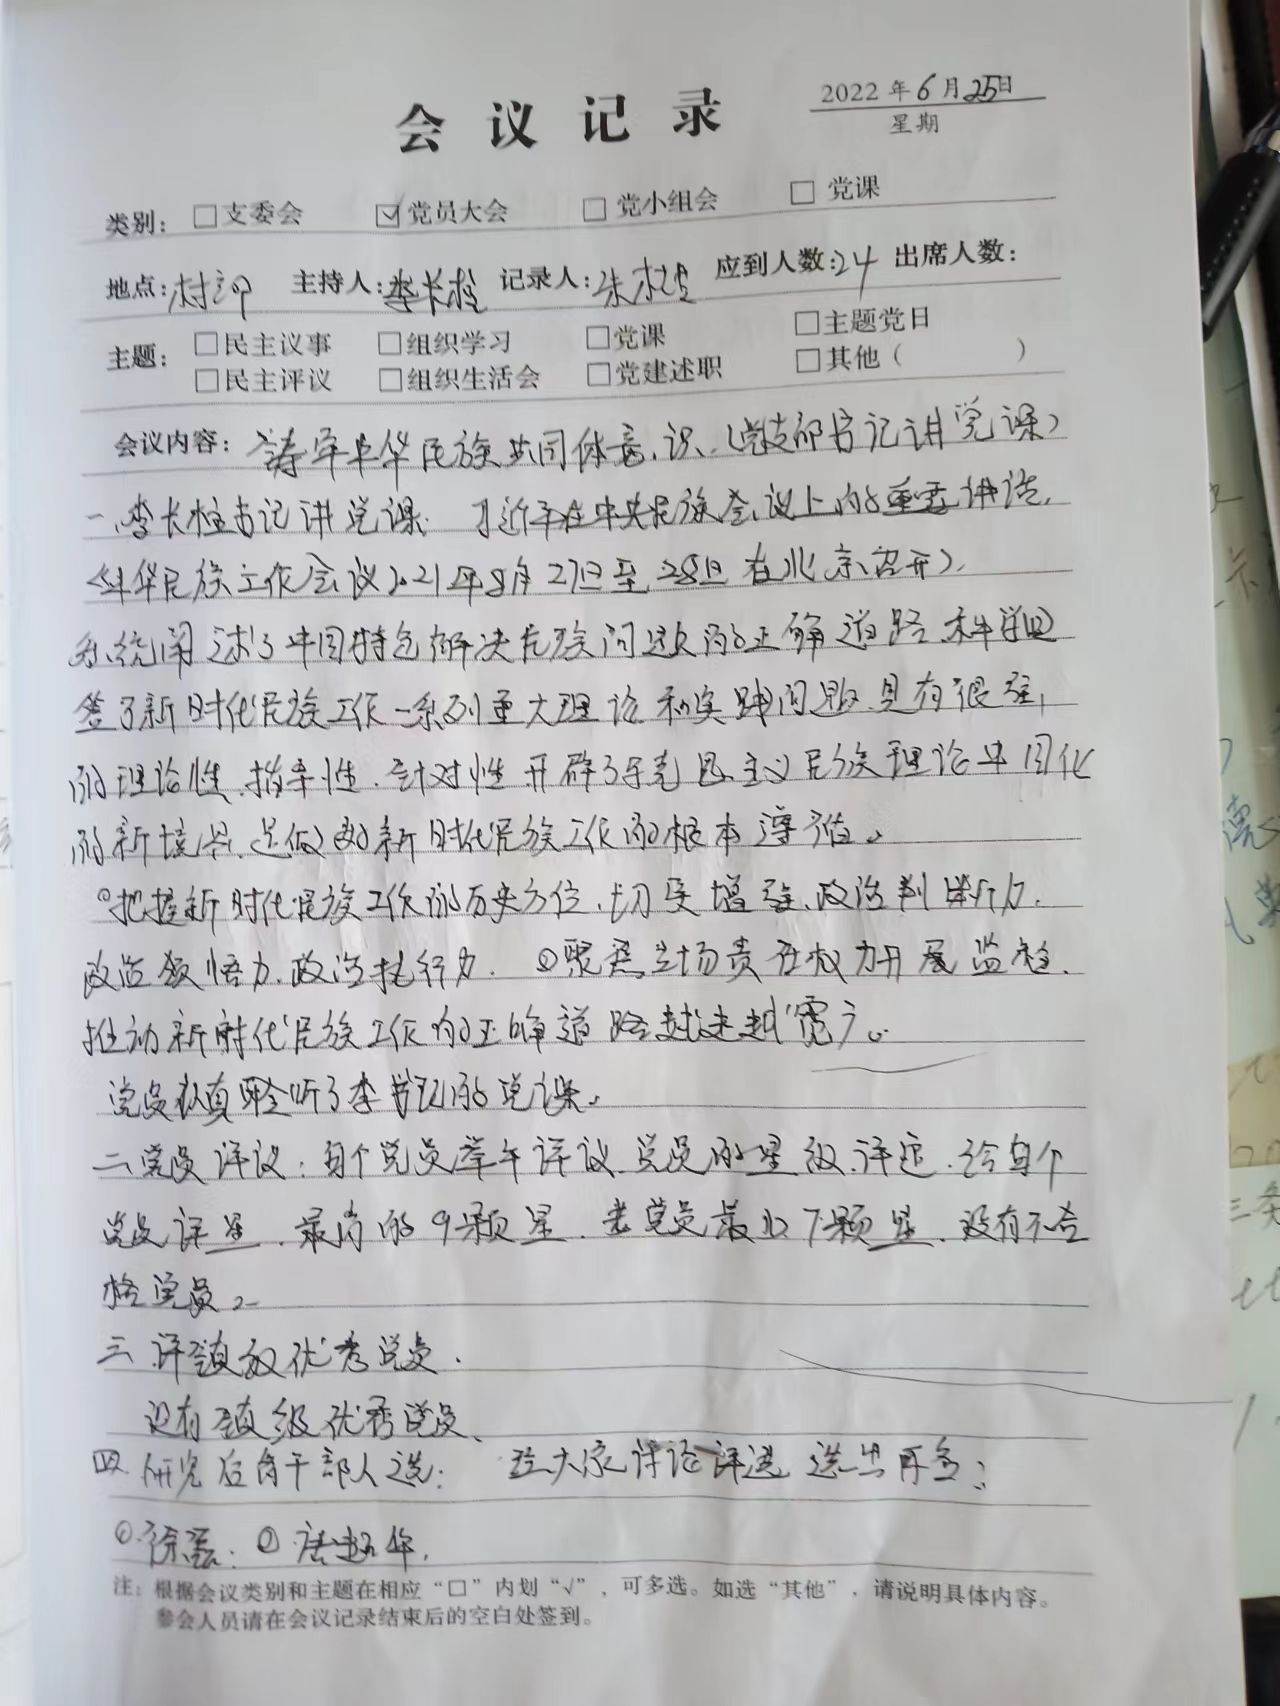 会议记录
2022年6月25日
星期
类别：□支委会 ☑党员大会 □党小组会 □党课
地点：村部 主持人：李长柱 记录人： 应到人数：24 出席人数：
主题：□民主议事 □组织学习 □党课 □主题党日
□民主评议 □组织生活会 □党建述职 □其他（ ）
会议内容：铸牢中华民族共同体意识.（党支部书记讲党课）
一.李长柱书记讲党课. 习近平在中央民族会议上的重要讲话.
《中华民族工作会议2021年8月27日至28日在北京召开》.
系统阐述了中国特色解决民族问题的正确道路.科学回
答了新时代民族工作一系列重大理论和实践问题.具有很强
的理论性.指导性.针对性.开辟了马克思主义民族理论中国化
的新境界.是做好新时代民族工作的根本遵循。
①把握新时代民族工作的历史方位.切实增强.政治判断力.
政治领悟力.政治执行力. ②聚焦主场责任权力开展监检.
推动新时代民族工作的正确道路越走越宽广。
党员认真聆听了李书记的党课。
二.党员评议：每个党员举手评议.党员的星级评定.给每个
党员评星.最高的9颗星.老党员最少7颗星.没有不合
格党员。
三.评镇级优秀党员.
没有镇级优秀党员、
四.研究后备干部人选： 经大家评论评选 选出两名：
①.徐磊. ②.唐超华.
注：根据会议类别和主题在相应“□”内划“√”，可多选。如选“其他”，请说明具体内容。
参会人员请在会议记录结束后的空白处签到。